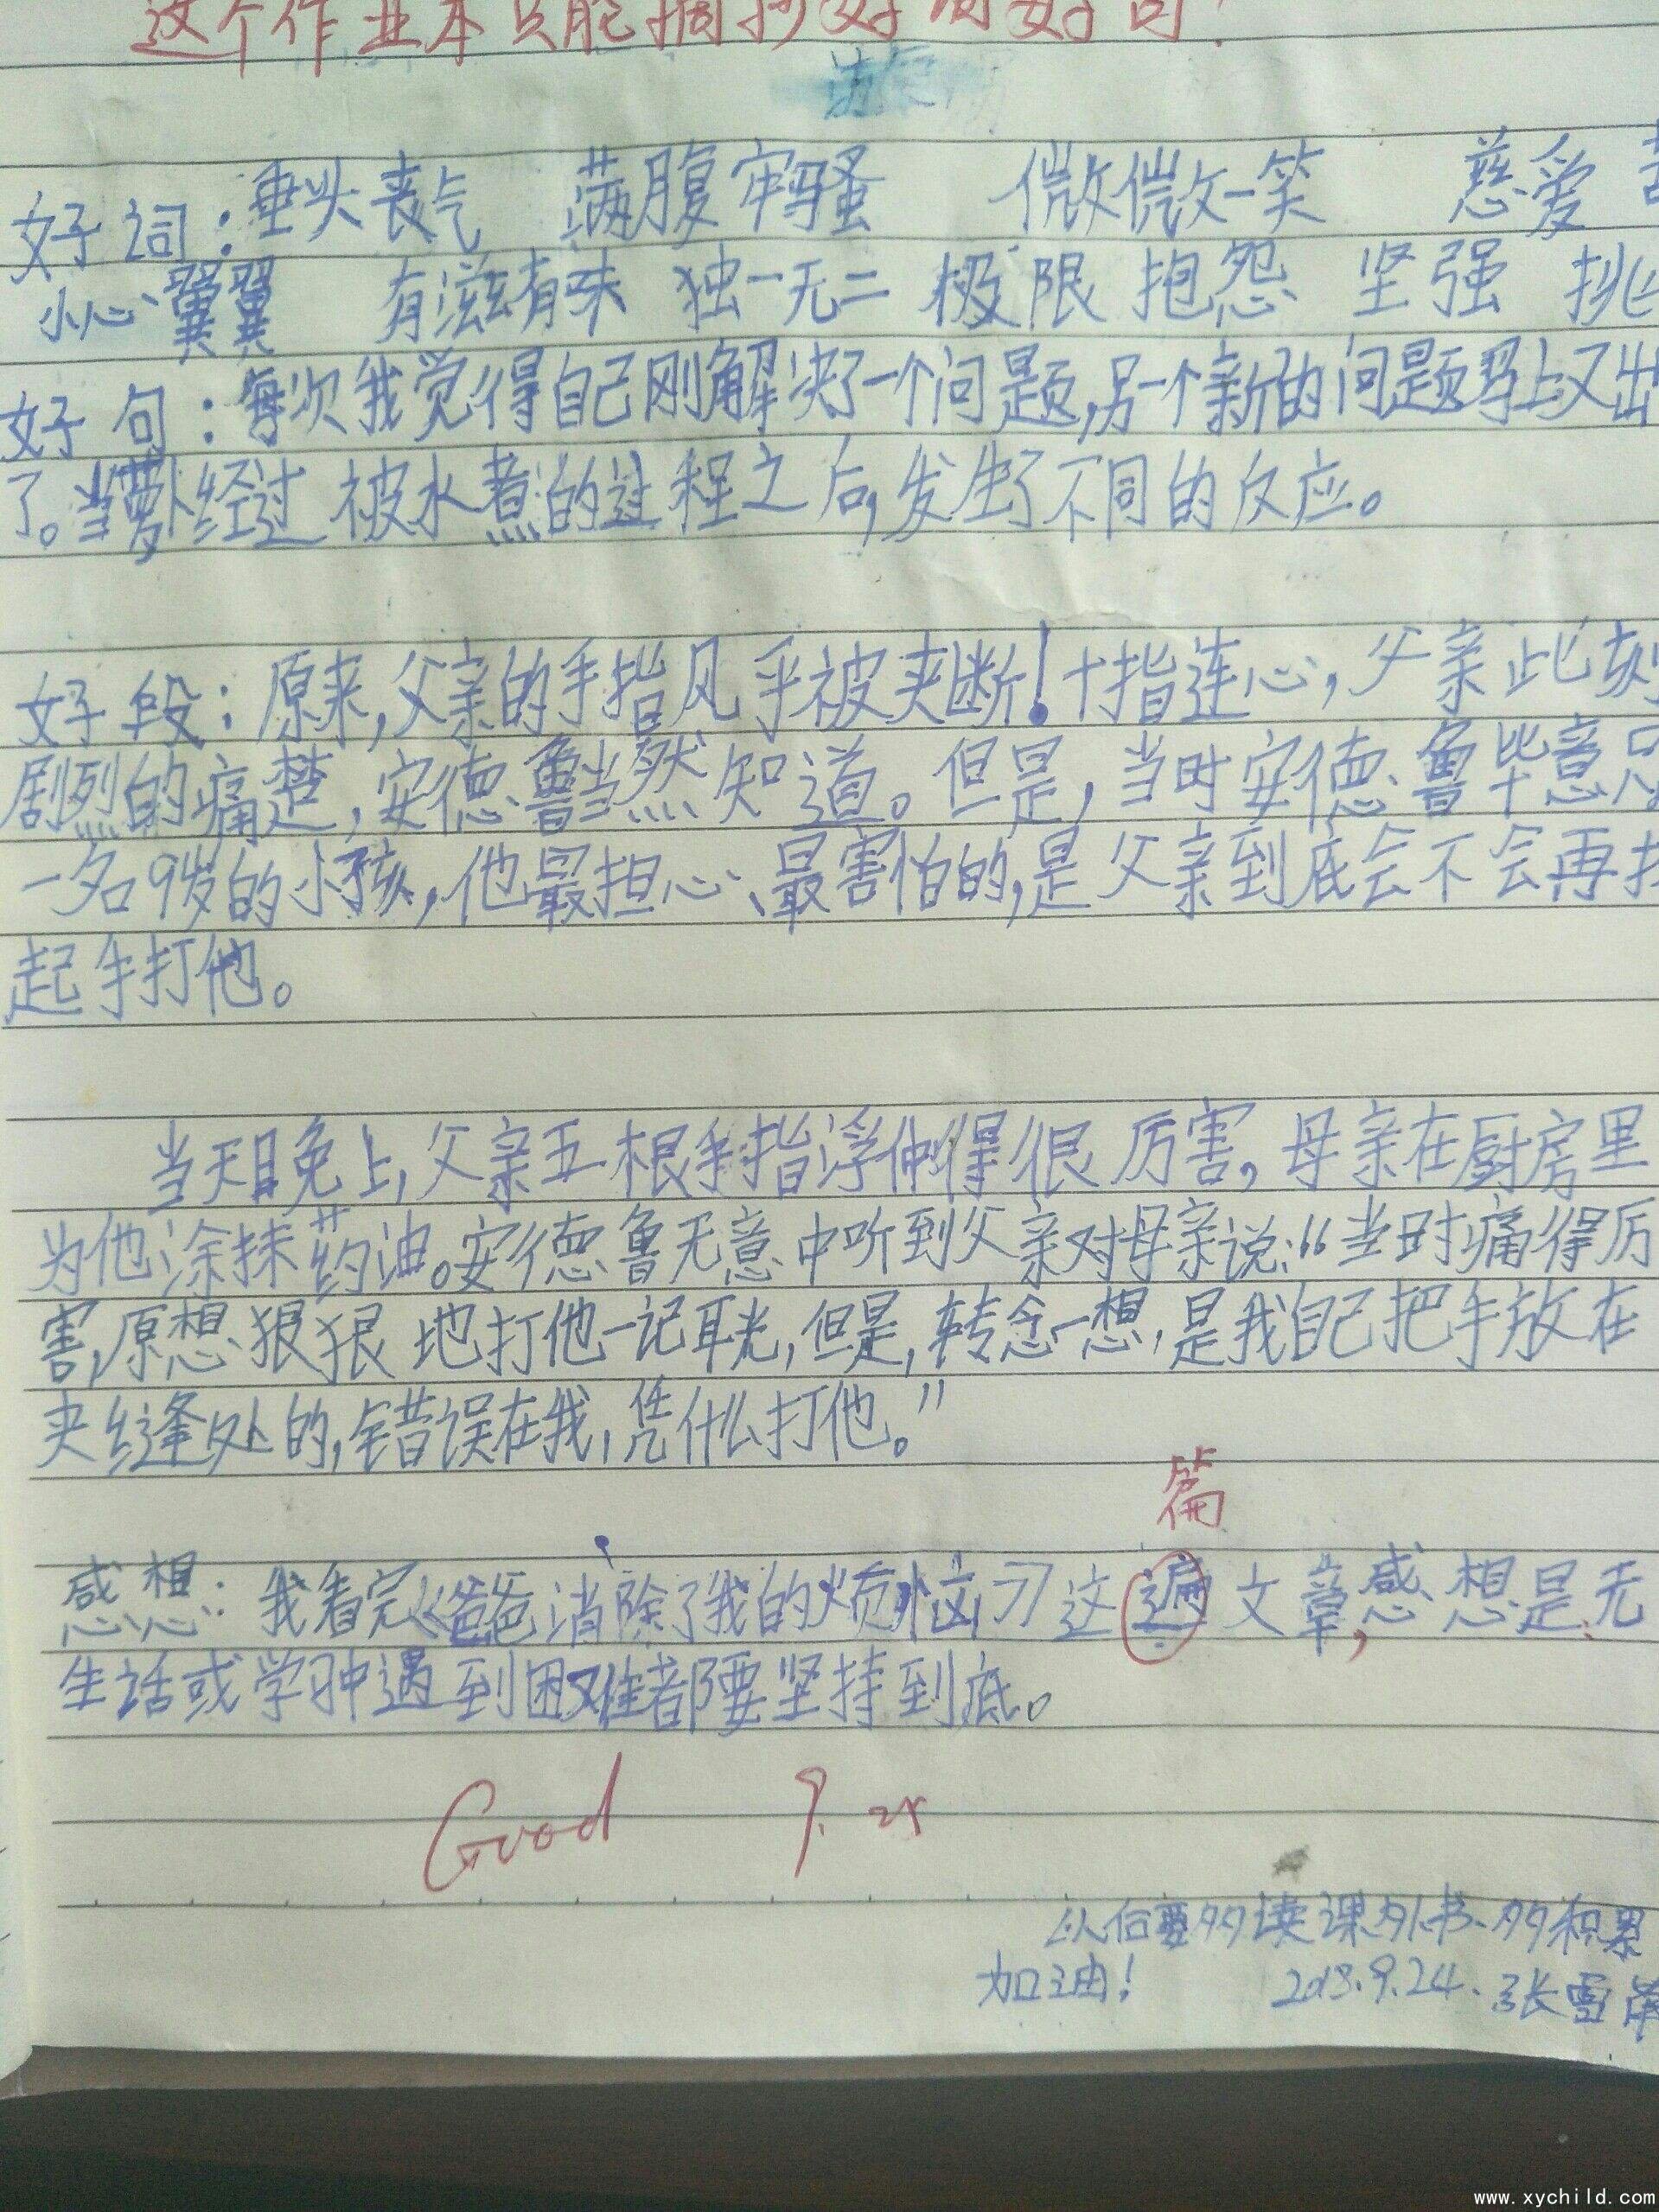 这个作业本只能摘抄好词好句！
好词：垂头丧气 满腹牢骚 微微一笑 慈爱
小心翼翼 有滋有味 独一无二 极限 抱怨 坚强 挑
好句：每次我觉得自己刚解决了一个问题，另一个新的问题马上又出
了。当萝卜经过被水煮的过程之后，发生了不同的反应。
好段：原来，父亲的手指几乎被夹断！十指连心，父亲此刻
剧烈的痛楚，安德鲁当然知道。但是，当时安德鲁毕意只
一名9岁的小孩，他最担心、最害怕的，是父亲到底会不会再扬
起手打他。
当天晚上，父亲五根手指浮肿得很厉害，母亲在厨房里
为他涂抹药油。安德鲁无意中听到父亲对母亲说：“当时痛得厉
害，原想狠狠地打他一记耳光，但是，转念一想，是我自己把手放在
夹缝处的，错误在我，凭什么打他。”
篇
感想：我看完《爸爸消除了我的烦恼》这遍文章，感想是无
生活或学习中遇到困难都要坚持到底。
Good 9.25
以后要多读课外书、多积累
加油！ 2018.9.24. 张雪
www.xychild.com